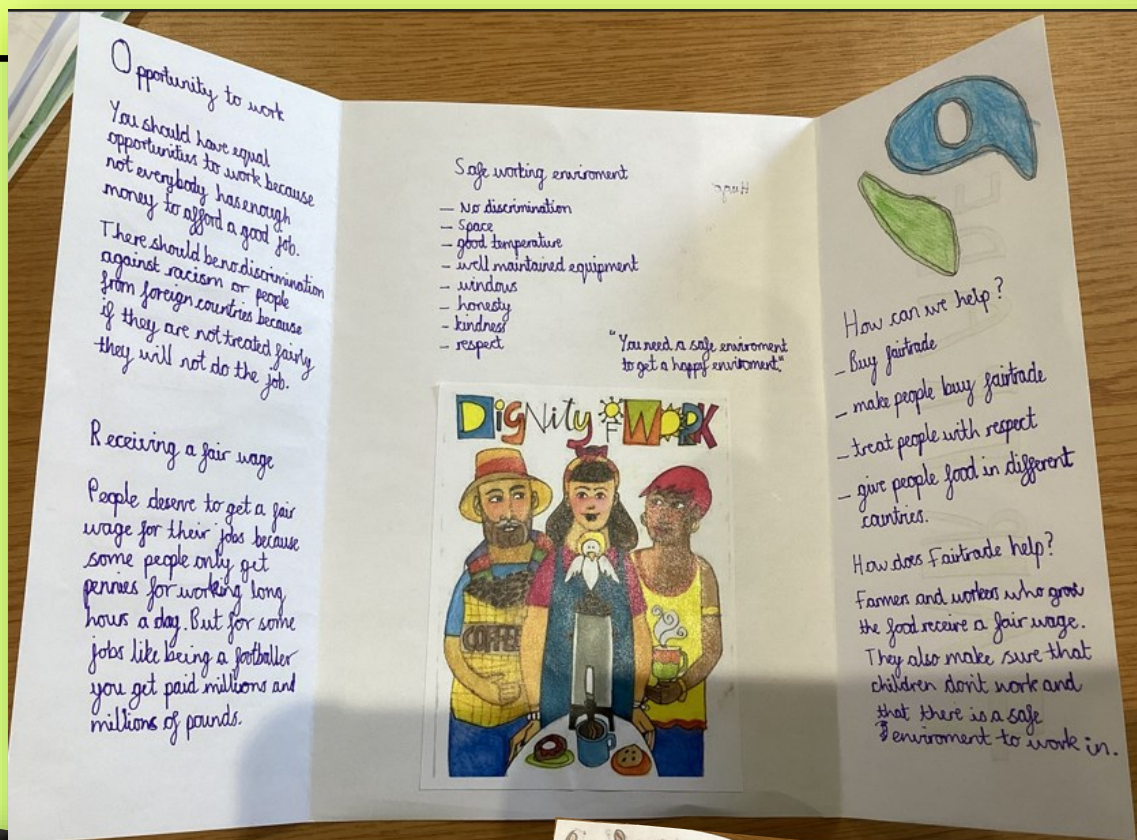 Opportunity to work
You should have equal
opportunities to work because
not everybody has enough
money to afford a good job.
There should be no discrimination
against racism or people
from foreign countries because
if they are not treated fairly
they will not do the job.
Receiving a fair wage
People deserve to get a fair
wage for their jobs because
some people only get
pennies for working long
hours a day. But for some
jobs like being a footballer
you get paid millions and
millions of pounds.
Safe working enviroment
– No discrimination
– Space
– good temperature
– well maintained equipment
– windows
– honesty
– kindness
– respect
"You need a safe enviroment
to get a happy enviroment."
DigNity OF WORK
COFFEE
How can we help?
– Buy fairtrade
– make people buy fairtrade
– treat people with respect
– give people food in different
countries.
How does Fairtrade help?
Farmers and workers who grow
the food receive a fair wage.
They also make sure that
children don't work and
that there is a safe
enviroment to work in.